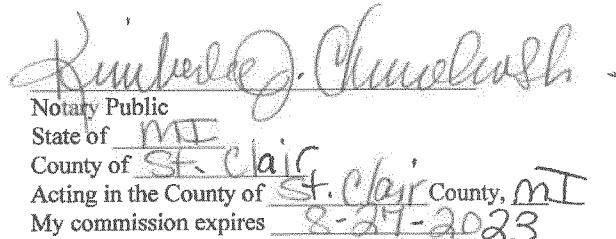 Kimberlee J.
Notary Public
State of MI
County of St. Clair
Acting in the County of St. Clair County, MI
My commission expires 8-27-2023